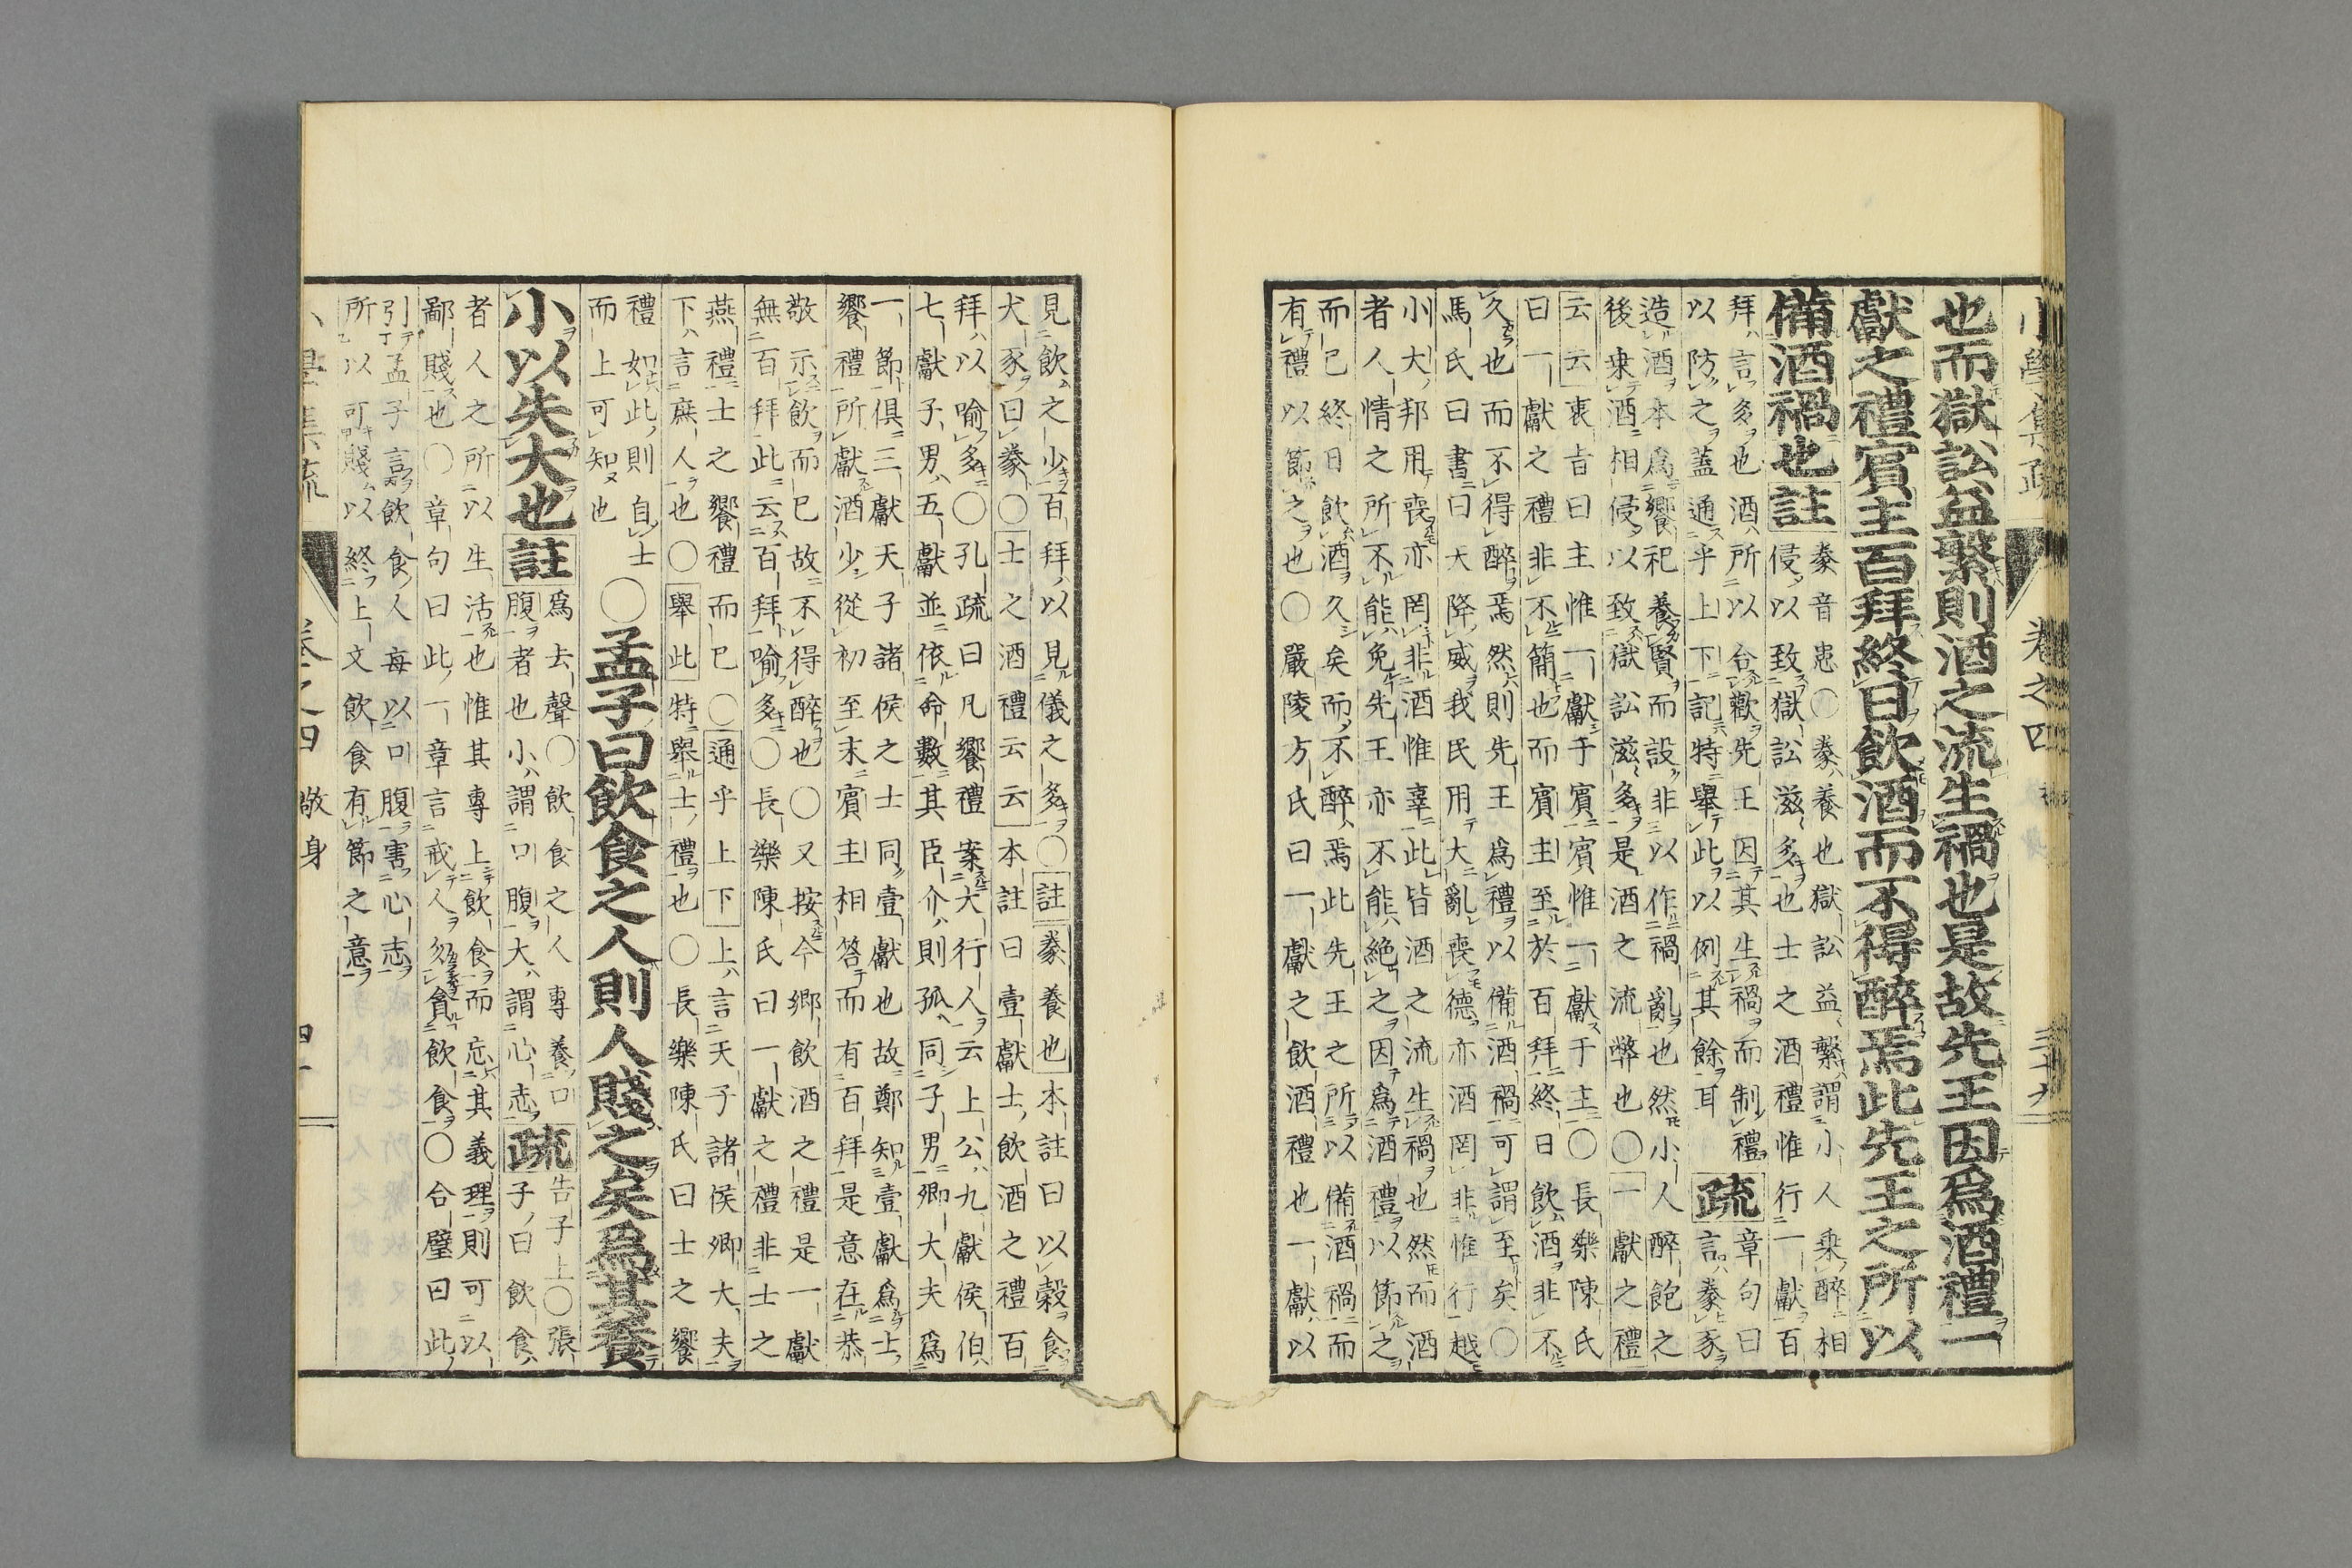 小學集疏 卷之四 三十九
也而獄訟益繁則酒之流生禍也是故先王因爲酒禮一
獻之禮賓主百拜終日飲酒而不得醉焉此先王之所以
備酒禍也 註
豢音患○豢養也獄訟益繁謂小人乘醉相
侵以致獄訟滋多也士之酒禮惟行一獻百
拜言多也酒所以合歡先王因其生禍而制禮
以防之蓋通乎上下記特舉此以例其餘耳
疏
章句曰
言豢豕
造酒本爲饗祀養賢而設非以作禍亂也然小人醉飽之
後乘酒相侵以致獄訟滋多是酒之流弊也○一獻之禮
云云衷旨曰主惟一獻于賓賓惟一獻于主○長樂陳氏
曰一獻之禮非不簡也而賓主至於百拜終日飲酒非不
久也而不得醉焉然則先王爲禮以備酒禍可謂至矣○
馬氏曰書曰天降威我民用大亂喪德亦酒罔非惟行越
小大邦用喪亦罔非酒惟辜此皆酒之流生禍也然而酒
者人情之所不能免先王亦不能絶之因爲酒禮以節之
而已終日飲酒久矣而不醉焉此先王之所以備酒禍而
有禮以節之也○嚴陵方氏曰一獻之飲酒禮也一獻以
見飲之少百拜以見儀之多○註豢養也本註曰以穀食
犬豕曰豢○士之酒禮云云本註曰壹獻士飲酒之禮百
拜以喻多○孔疏曰凡饗禮案大行人云上公九獻侯伯
七獻子男五獻並依命數其臣介則孤同子男卿大夫爲
一節俱三獻天子諸侯之士同壹獻也故鄭知壹獻爲士
饗禮所獻酒少從初至末賓主相答而有百拜是意在恭
敬示飲而已故不得醉也○又按今鄉飲酒之禮是一獻
無百拜此云百拜喻多○長樂陳氏曰一獻之禮非士之
燕禮士之饗禮而已○通乎上下上言天子諸侯卿大夫
下言庶人也○舉此特舉士禮也○長樂陳氏曰士之饗
禮如此則自士
而上可知也
○孟子曰飲食之人則人賤之矣爲其養
小以失大也 註
爲去聲○飲食之人專養口
腹者也小謂口腹大謂心志
疏
告子上○張
子曰飲食
者人之所以生活也惟其專上飲食而忘其義理則可以
鄙賤也○章句曰此一章言戒人勿貪飲食○合璧曰此
引孟子言飲食人每以口腹害心志
所以可賤以終上文飲食有節之意
卷之四 敬身